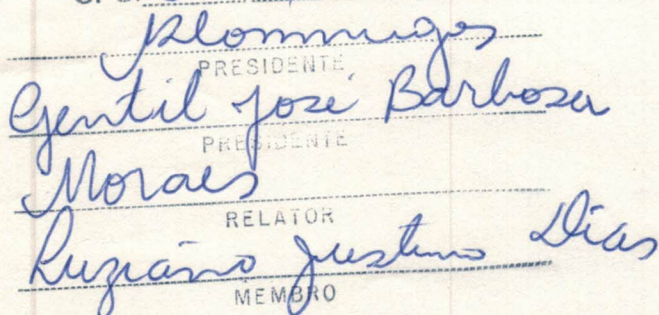 PRESIDENTE
Gentil José Barbosa
PRESIDENTE
Moraes
RELATOR
Luziano Justino Dias
MEMBRO